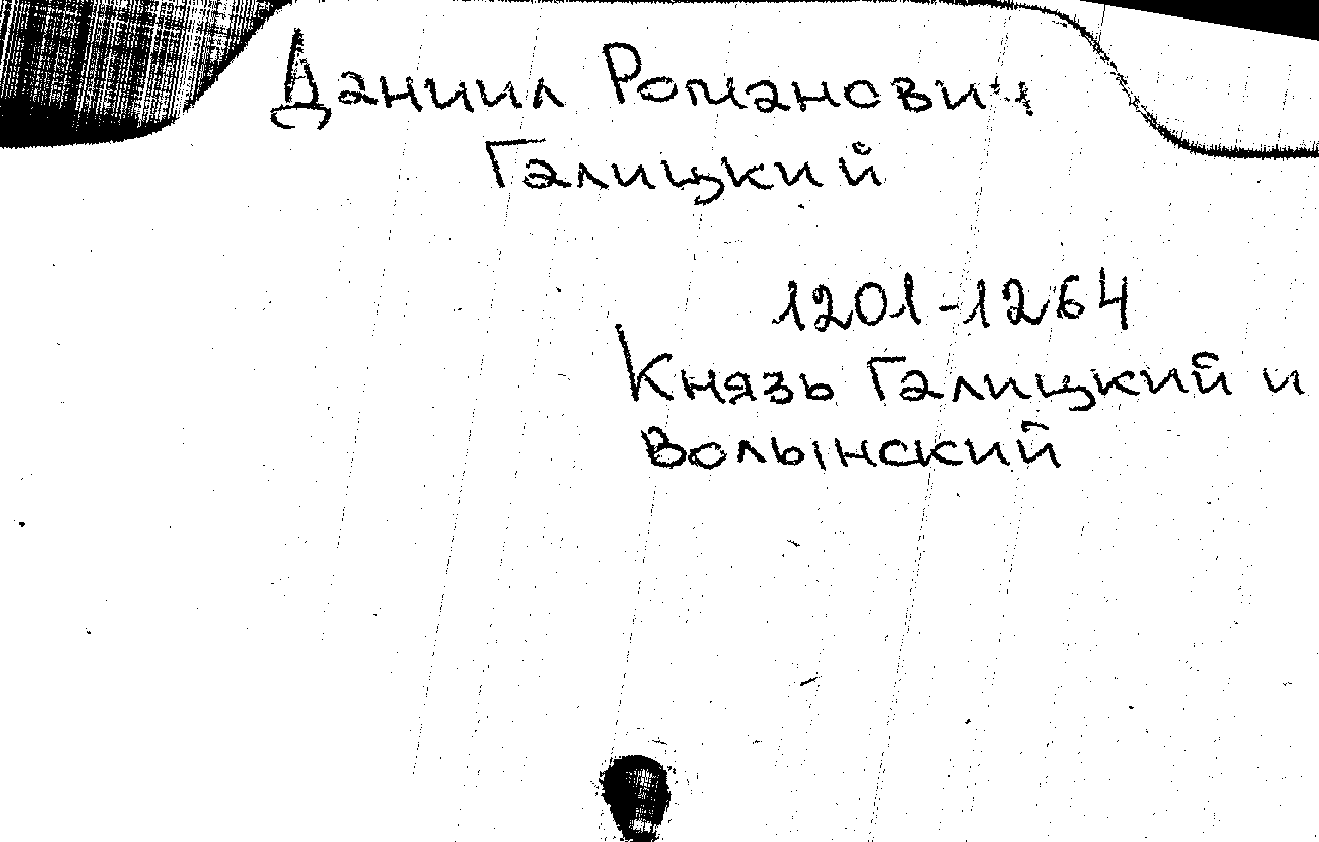 Даниил Романович
Галицкий
1201-1264
Князь Галицкий и
Волынский